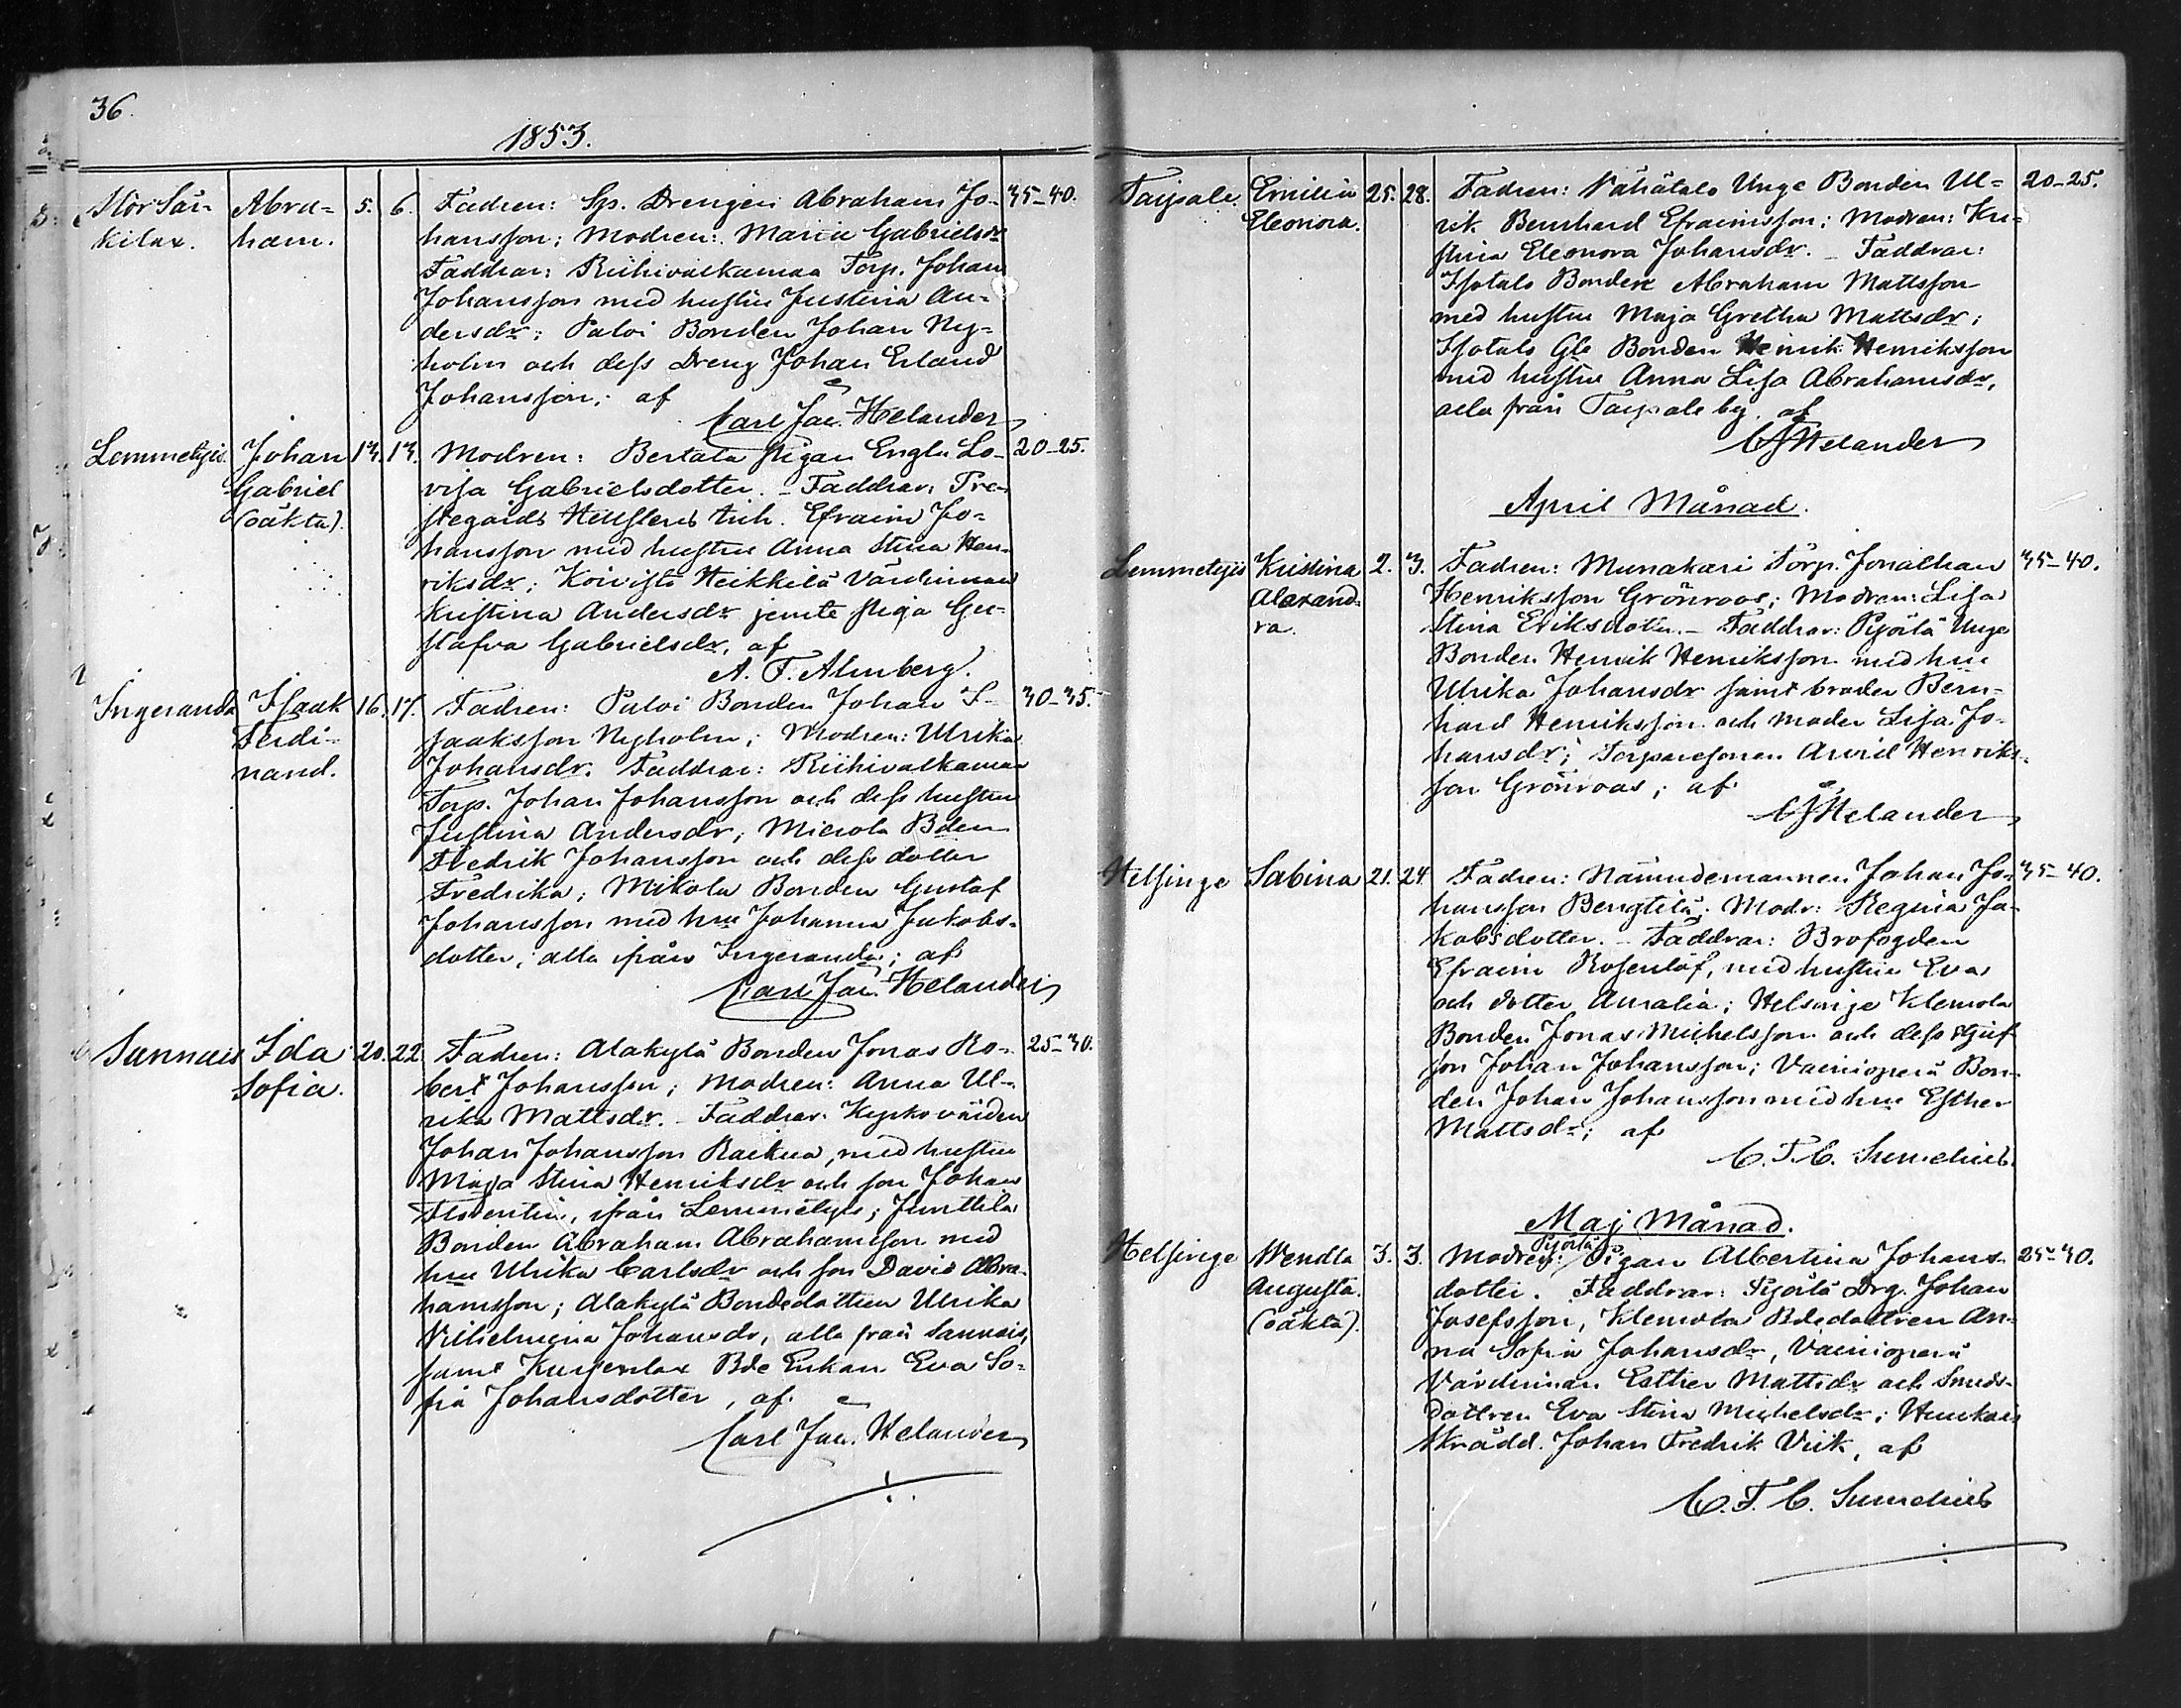 36.
1853.
Stor Sär- Abra- 5. 6. Fadren: Sp. Drengen Abraham Jo- 35-40.
kilax. ham. hansson; Modren: Maria Gabrielsdr
Faddrar: Riihivalkamaa Torp. Johan
Johansson med hustru Justina An-
dersdr; Paloi Bonden Johan Ny-
holm och dess Dreng Johan Erland
Johansson; af
Carl Jac. Helander
Lemmetyis. Johan 13. 13. Modren: Bertala pigan Engla Lo- 20-25.
Gabriel visa Gabrielsdotter. - Faddrar:
(oäkta). Efraim Jo-
hansson med hustru Anna Stina Hen-
riksdr; Koivisto Heikkilä Värdinnan
Kristina Andersdr jemte piga Gu-
stafva Gabrielsdr, af
A. F. Almberg.
Ingeranda Isaak 16. 17. Fadren: Paloi Bonden Johan I- 30-35.
Ferdi- saaksson Nyholm; Modren: Ulrika
nand. Johansdr. Faddrar: Riihivalkamaa
Torp. Johan Johansson och dess hustru
Justina Andersdr; Bden
Fredrik Johansson och dess dotter
Fredrika; Mikola Bonden Gustaf
Johansson med hru Johanna Jakobs-
dotter, alla ifrån Ingeranda; af
Carl Jac. Helander
Sannais Ida 20. 22. Fadren: Alakylä Bonden Jonas Ro- 25-30.
Sofia. bert Johansson; Modren: Anna Ul-
rika Mattsdr. - Faddrar: Kyrkovärden
Johan Johansson Raikua, med hustru
Maja Stina Henriksdr och son Johan
Florentin, ifrån Lemmetyis; Junttila
Bonden Abraham Abrahamsson med
hru Ulrika Carlsdr och son David Abra-
hamsson; Alakylä Bondedottren Ulrika
Vilhelmina Johansdr, alla från Sannais,
samt Kursenlax Bde Enkan Eva So-
fia Johansdotter, af
Carl Jac. Helander
Taipale. Emilia 25. 28. Fadren: Vähätalo Unge Bonden Ul- 20-25.
Eleonora. rik Bernhard Efraimsson; Modren: Kri-
stina Eleonora Johansdr. - Faddrar:
Isotalo Bonden Abraham Mattsson
med hustru Maja Gretha Mattsdr;
Isotalo Gle Bonden Henrik Henriksson
med hustru Anna Lisa Abrahamsdr,
alla från Taipale by. af
CJHelander
April Månad.
Lemmetyis Kristina 2. 3. Fadren: Munakari Torp. Jonathan 35-40.
Alexand- Henriksson Grönroos; Modren: Lisa
ra. Stina Eriksdotter. - Faddrar: Pyöilä Unga
Bonden Henrik Henriksson med hru
Ulrika Johansdr samt broder Bern-
hard Henriksson och moder Lisa Jo-
hansdr; Torparesonen Arvid Henriks-
son Grönroos; af
CJHelander
Helsinge Sabina 21. 24. Fadren: Nämndemannen Johan Jo- 35-40.
hansson Bengtilä; Modr: Regina Ja-
kobsdotter. - Faddrar: Brofogden
Efraim Rosenlöf, med hustru Eva
och dotter Amalia; Helsinge Klemola
Bonden Jonas Michelsson och dess styf
son Johan Johansson; Vainionperä Bon-
den Johan Johansson med hru Esther
Mattsdr; af
C. F. C. Sumelius.
Maj Månad.
Pyöilä
Helsinge Wendla 3. 3. Modren: Pigan Albertina Johans- 25-30.
Augusta. dotter. Faddrar: Pyöilä Drg. Johan
(oäkta). Josefsson, Klemola Bdedottren An-
na Sofia Johansdr, Vainionperä
Värdinnan Esther Mattsdr och Smeds-
dottren Eva Stina Michelsdr;
Skrädd. Johan Fredrik Vik, af
C. F. C. Sumelius